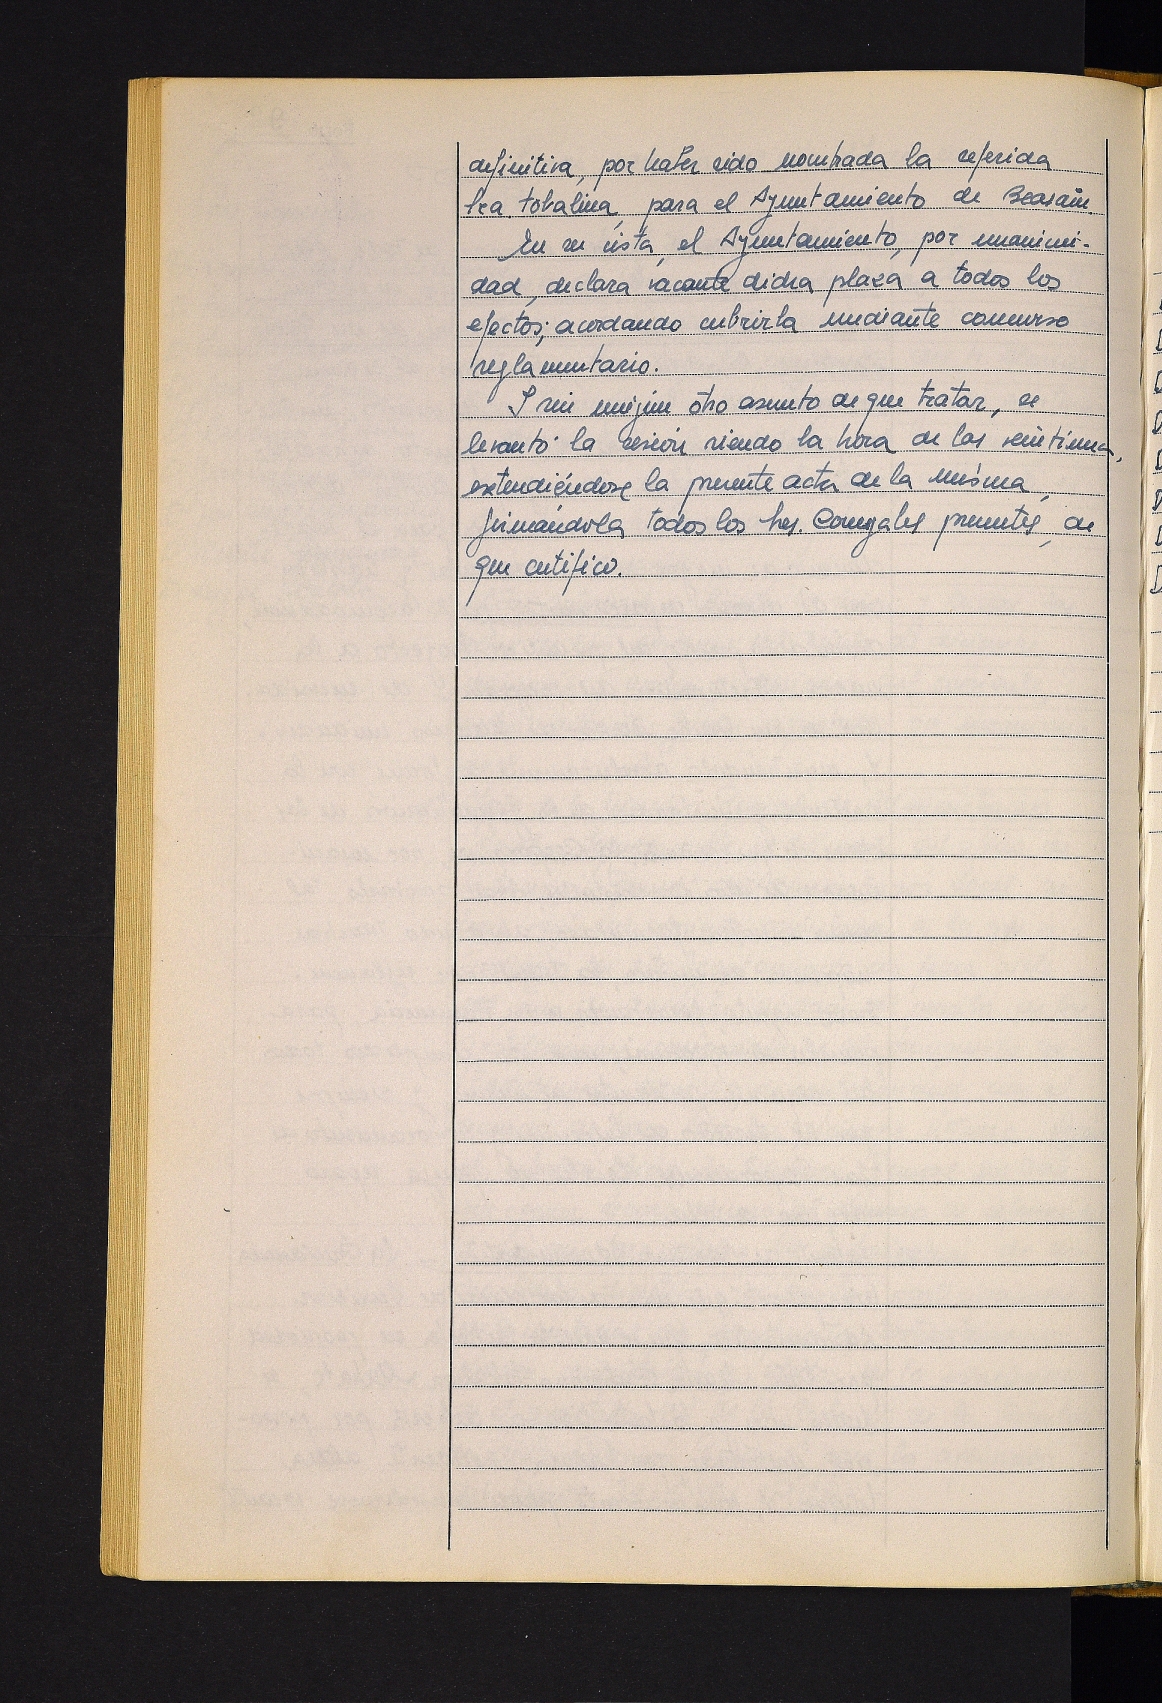 definitiva, por haber sido nombrada la referida
Sra. Tobalina, para el Ayuntamiento de Beasain.
En su vista, el Ayuntamiento, por unanimi-
dad, declara vacante dicha plaza a todos los
efectos; acordando cubrirla mediante concurso
reglamentario.
Y sin ningún otro asunto de que tratar, se
levantó la sesión siendo la hora de las veintiuna,
extendiéndose la presente acta de la misma,
firmándola todos los Sres. Concejales presentes, de
que certifico.